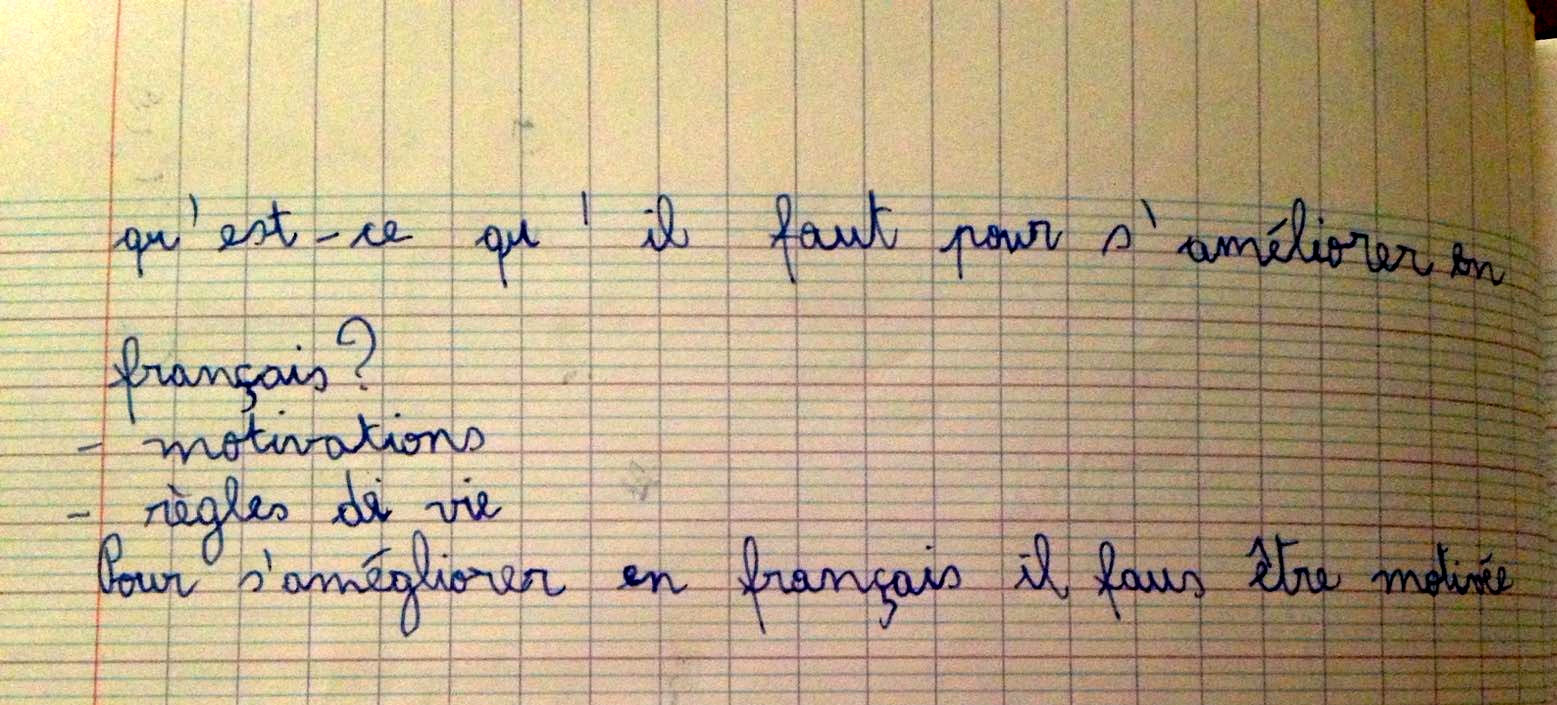 qu'est-ce qu'il faut pour s'améliorer en
français?
- motivations
- règles de vie
Pour s'amégliorer en français il faus être motivée